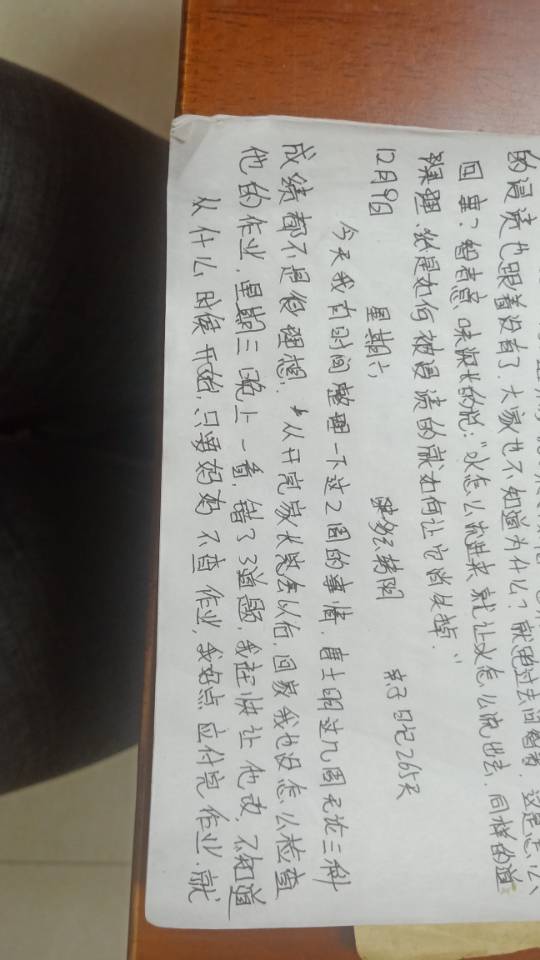 的浸渍也跟着没有了.大家也不知道为什么?就跑过去问智者.这是怎么
回事?智者意味深长的说:"水怎么流进来,就让水怎么流出去.同样的道
理,纸是如何被浸渍的就如何让它消失掉."
12月9日 星期六 多云转阴 亲子日记265天
今天我有时间整理一下这2周的事情.唐士明这几周无论三科
成绩都不是很理想.从开完家长会以后,回家我也没怎么检查
他的作业.星期三晚上一看,错了3道题,我赶快让他改,不知道
从什么时候开始,只要妈妈不查作业,我就点应付完作业.就